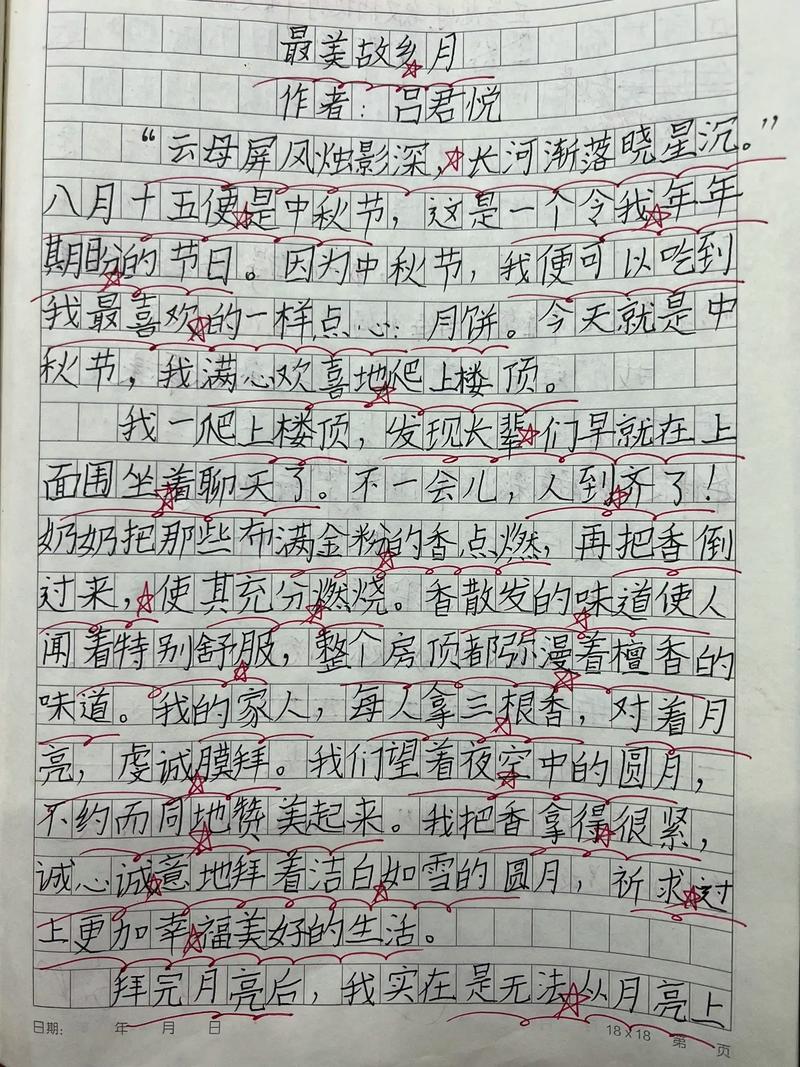 最美故乡月
作者：吕君悦
“云母屏风烛影深，长河渐落晓星沉。”
八月十五便是中秋节，这是一个令我年年
期盼的节日。因为中秋节，我便可以吃到
我最喜欢的一样点心：月饼。今天就是中
秋节，我满心欢喜地爬上楼顶。
我一爬上楼顶，发现长辈们早就在上
面围坐着聊天了。不一会儿，人到齐了！
奶奶把那些布满金粉的香点燃，再把香倒
过来，使其充分燃烧。香散发的味道使人
闻着特别舒服，整个房顶都弥漫着檀香的
味道。我的家人，每人拿三根香，对着月
亮，虔诚膜拜。我们望着夜空中的圆月，
不约而同地赞美起来。我把香拿得很紧，
诚心诚意地拜着洁白如雪的圆月，祈求过
上更加幸福美好的生活。
拜完月亮后，我实在是无法从月亮上
日期： 年 月 日 18×18 第 页